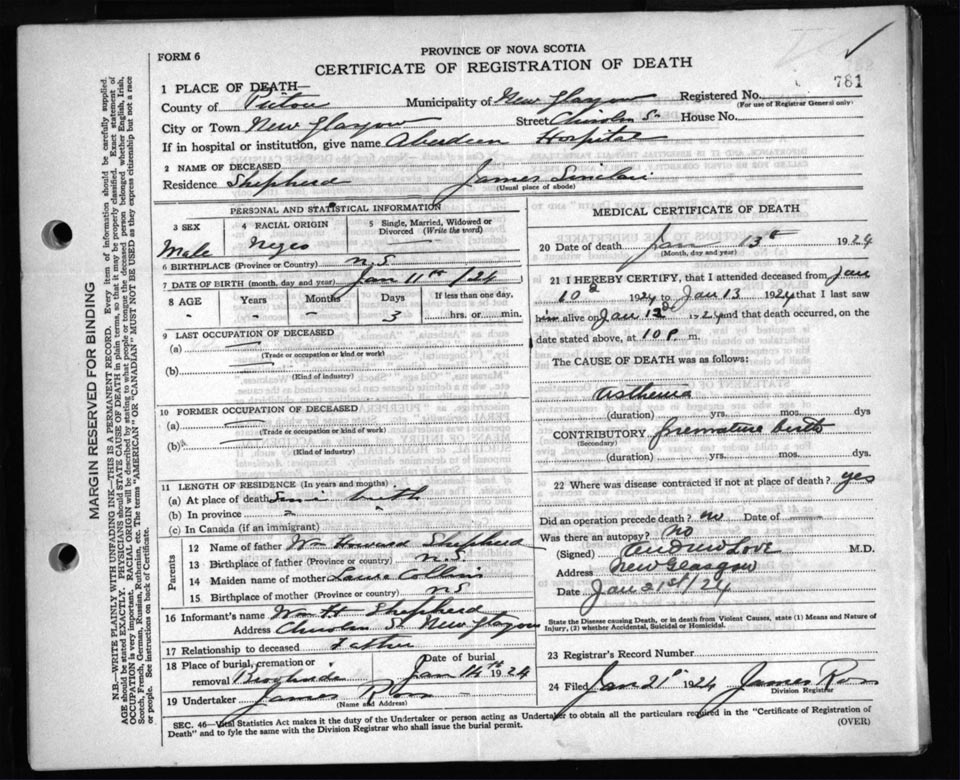 FORM 6
PROVINCE OF NOVA SCOTIA
CERTIFICATE OF REGISTRATION OF DEATH
781
1 PLACE OF DEATH—
County of Pictou Municipality of New Glasgow Registered No.
(For use of Registrar General only)
City or Town New Glasgow Street Chisolm St House No.
If in hospital or institution, give name Aberdeen Hospital
2 NAME OF DECEASED
Residence Shepherd James Sinclair
(Usual place of abode)
PERSONAL AND STATISTICAL INFORMATION
3 SEX 4 RACIAL ORIGIN 5 Single, Married, Widowed or Divorced (Write the word)
Male Negro —
6 BIRTHPLACE (Province or Country) N.S.
7 DATE OF BIRTH (month, day and year) Jan 11th /24
8 AGE Years Months Days If less than one day,
" – 3 hrs. or min.
9 LAST OCCUPATION OF DECEASED
(a) —
(Trade or occupation or kind or work)
(b) —
(Kind of industry)
10 FORMER OCCUPATION OF DECEASED
(a) —
(Trade or occupation or kind or work)
(b) —
(Kind of industry)
11 LENGTH OF RESIDENCE (In years and months)
(a) At place of death Since birth
(b) In province " "
(c) In Canada (if an immigrant)
Parents
12 Name of father Wm Howard Shepherd
13 Birthplace of father (Province or country) N.S.
14 Maiden name of mother Collins
15 Birthplace of mother (Province or country) NS
16 Informant's name Wm H Shepherd
Address Chisolm St New Glasgow
17 Relationship to deceased Father
18 Place of burial, cremation or removal Date of burial Jan 14th 1924
19 Undertaker James Ross
(Name and Address)
MEDICAL CERTIFICATE OF DEATH
20 Date of death Jan 13th 1924
(Month, day and year)
21 I HEREBY CERTIFY, that I attended deceased from Jan
10 1924 to Jan 13 1924 that I last saw
him alive on Jan 12 1924 and that death occurred, on
date stated above, at 10 p. m.
The CAUSE OF DEATH was as follows:
Asthenia
(duration) yrs. mos. dys
CONTRIBUTORY premature birth
(Secondary)
(duration) yrs. mos. dys.
22 Where was disease contracted if not at place of death? yes
Did an operation precede death? no Date of —
Was there an autopsy? no
(Signed) Andrew Love M.D.
Address New Glasgow
Date Jan 21st/24
State the Disease causing Death, or in death from Violent Causes, state (1) Means and Nature of
Injury, (2) whether Accidental, Suicidal or Homicidal.
23 Registrar's Record Number
24 Filed Jan 21st 1924 James Ross
Division Registrar
SEC. 46—Vital Statistics Act makes it the duty of the Undertaker or person acting as Undertaker to obtain all the particulars required in the "Certificate of Registration of
Death" and to fyle the same with the Division Registrar who shall issue the burial permit.
(OVER)
MARGIN RESERVED FOR BINDING
N.B.—WRITE PLAINLY WITH UNFADING INK—THIS IS A PERMANENT RECORD. Every item of information should be carefully supplied.
AGE should be stated EXACTLY. PHYSICIANS should STATE CAUSE OF DEATH in plain terms, so that it may be properly classified. Exact statement of
OCCUPATION is very important. RACIAL ORIGIN will be described by stating to what people or tongue the deceased person belonged whether English, Irish,
Scotch, French, German, Russian, Ruthenian, etc. The terms "AMERICAN" OR "CANADIAN" MUST NOT BE USED as they express citizenship but not a race
or people. See instructions on back of Certificate.